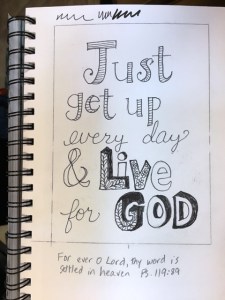 Just
get up
every day
& Live
for GOD
For ever O Lord, thy word is
settled in heaven Ps. 119:89